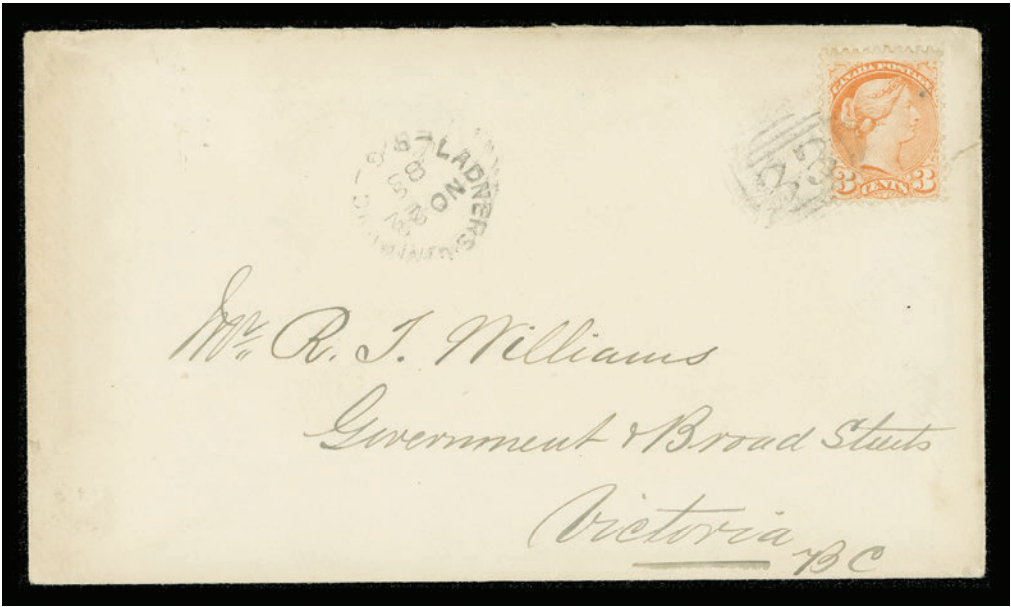 CANADA POSTAGE
3 CENTS 3
LADNERS
Mr. R. T. Williams
Government & Broad Streets
Victoria
BC